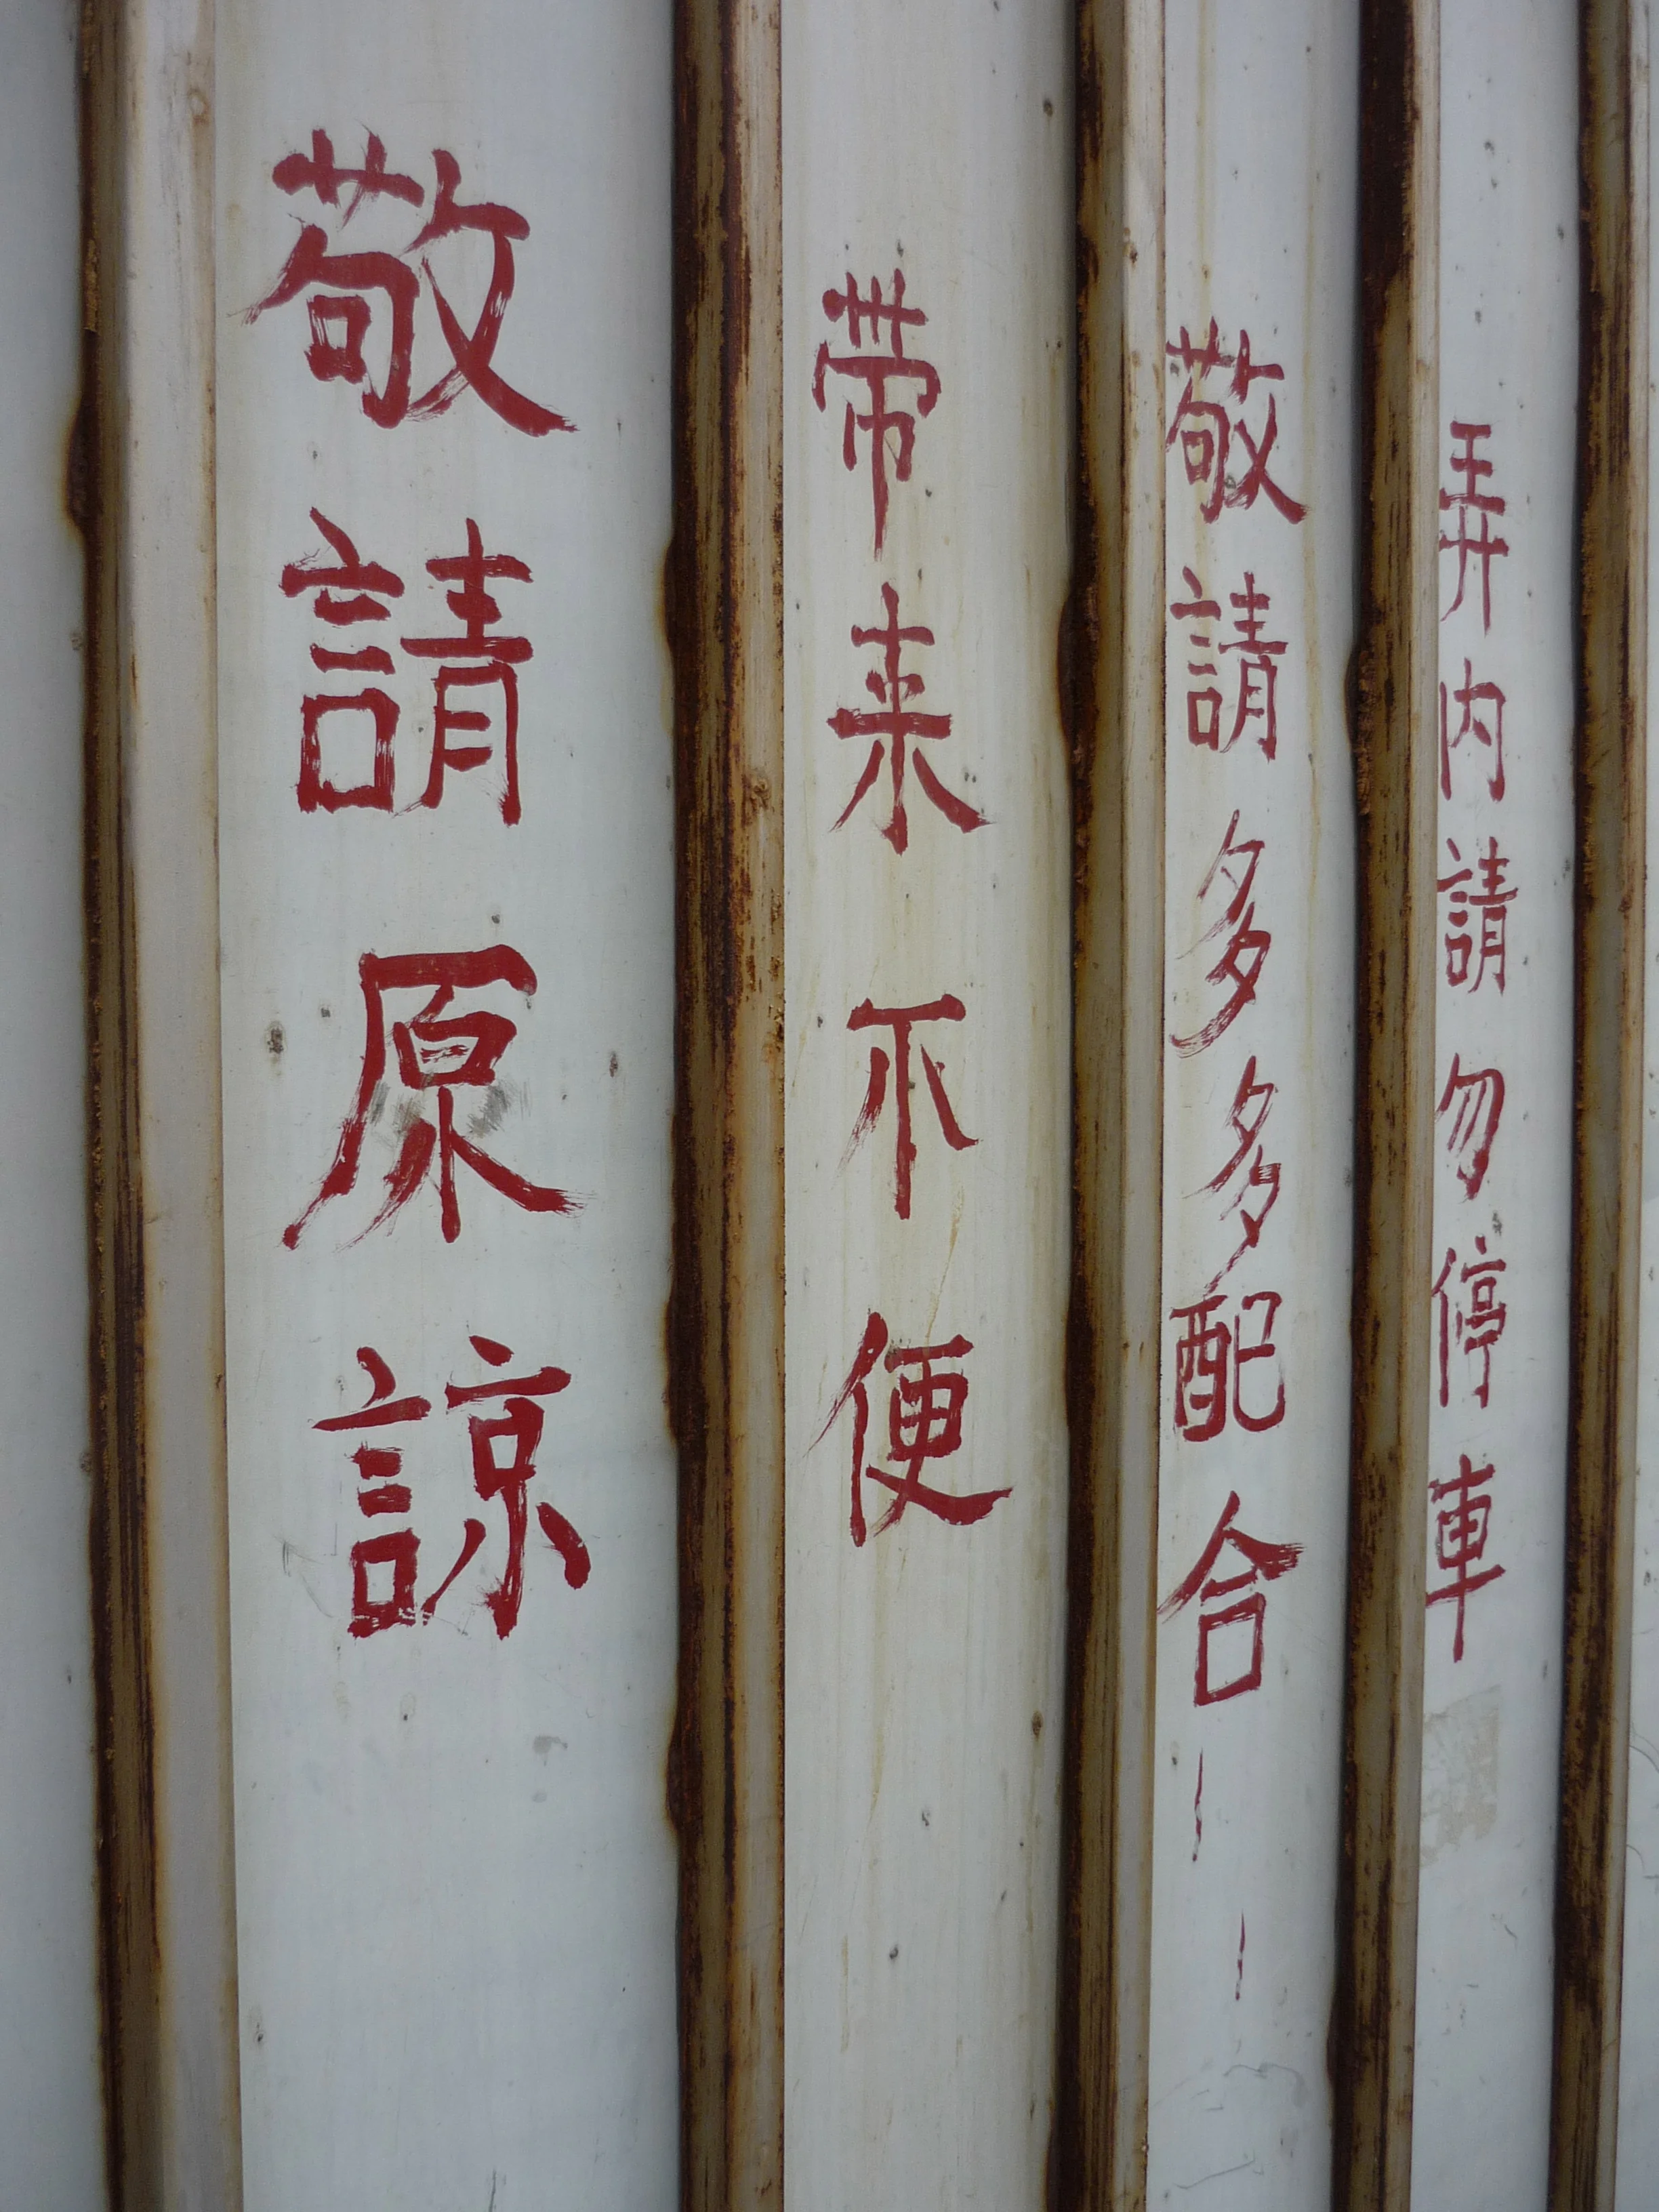 弄內請勿停車
敬請多多配合
帶来不便
敬請原諒